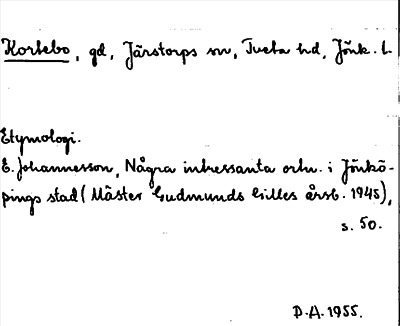 Kortebo, gd, Järstorps sn, Tveta hd, Jönk. l.
Etymologi.
E. Johannesson, Några intressanta ortn. i Jönkö-
pings stad (Mäster Gudmunds Gilles årsb. 1945),
s. 50.
D.A. 1955.